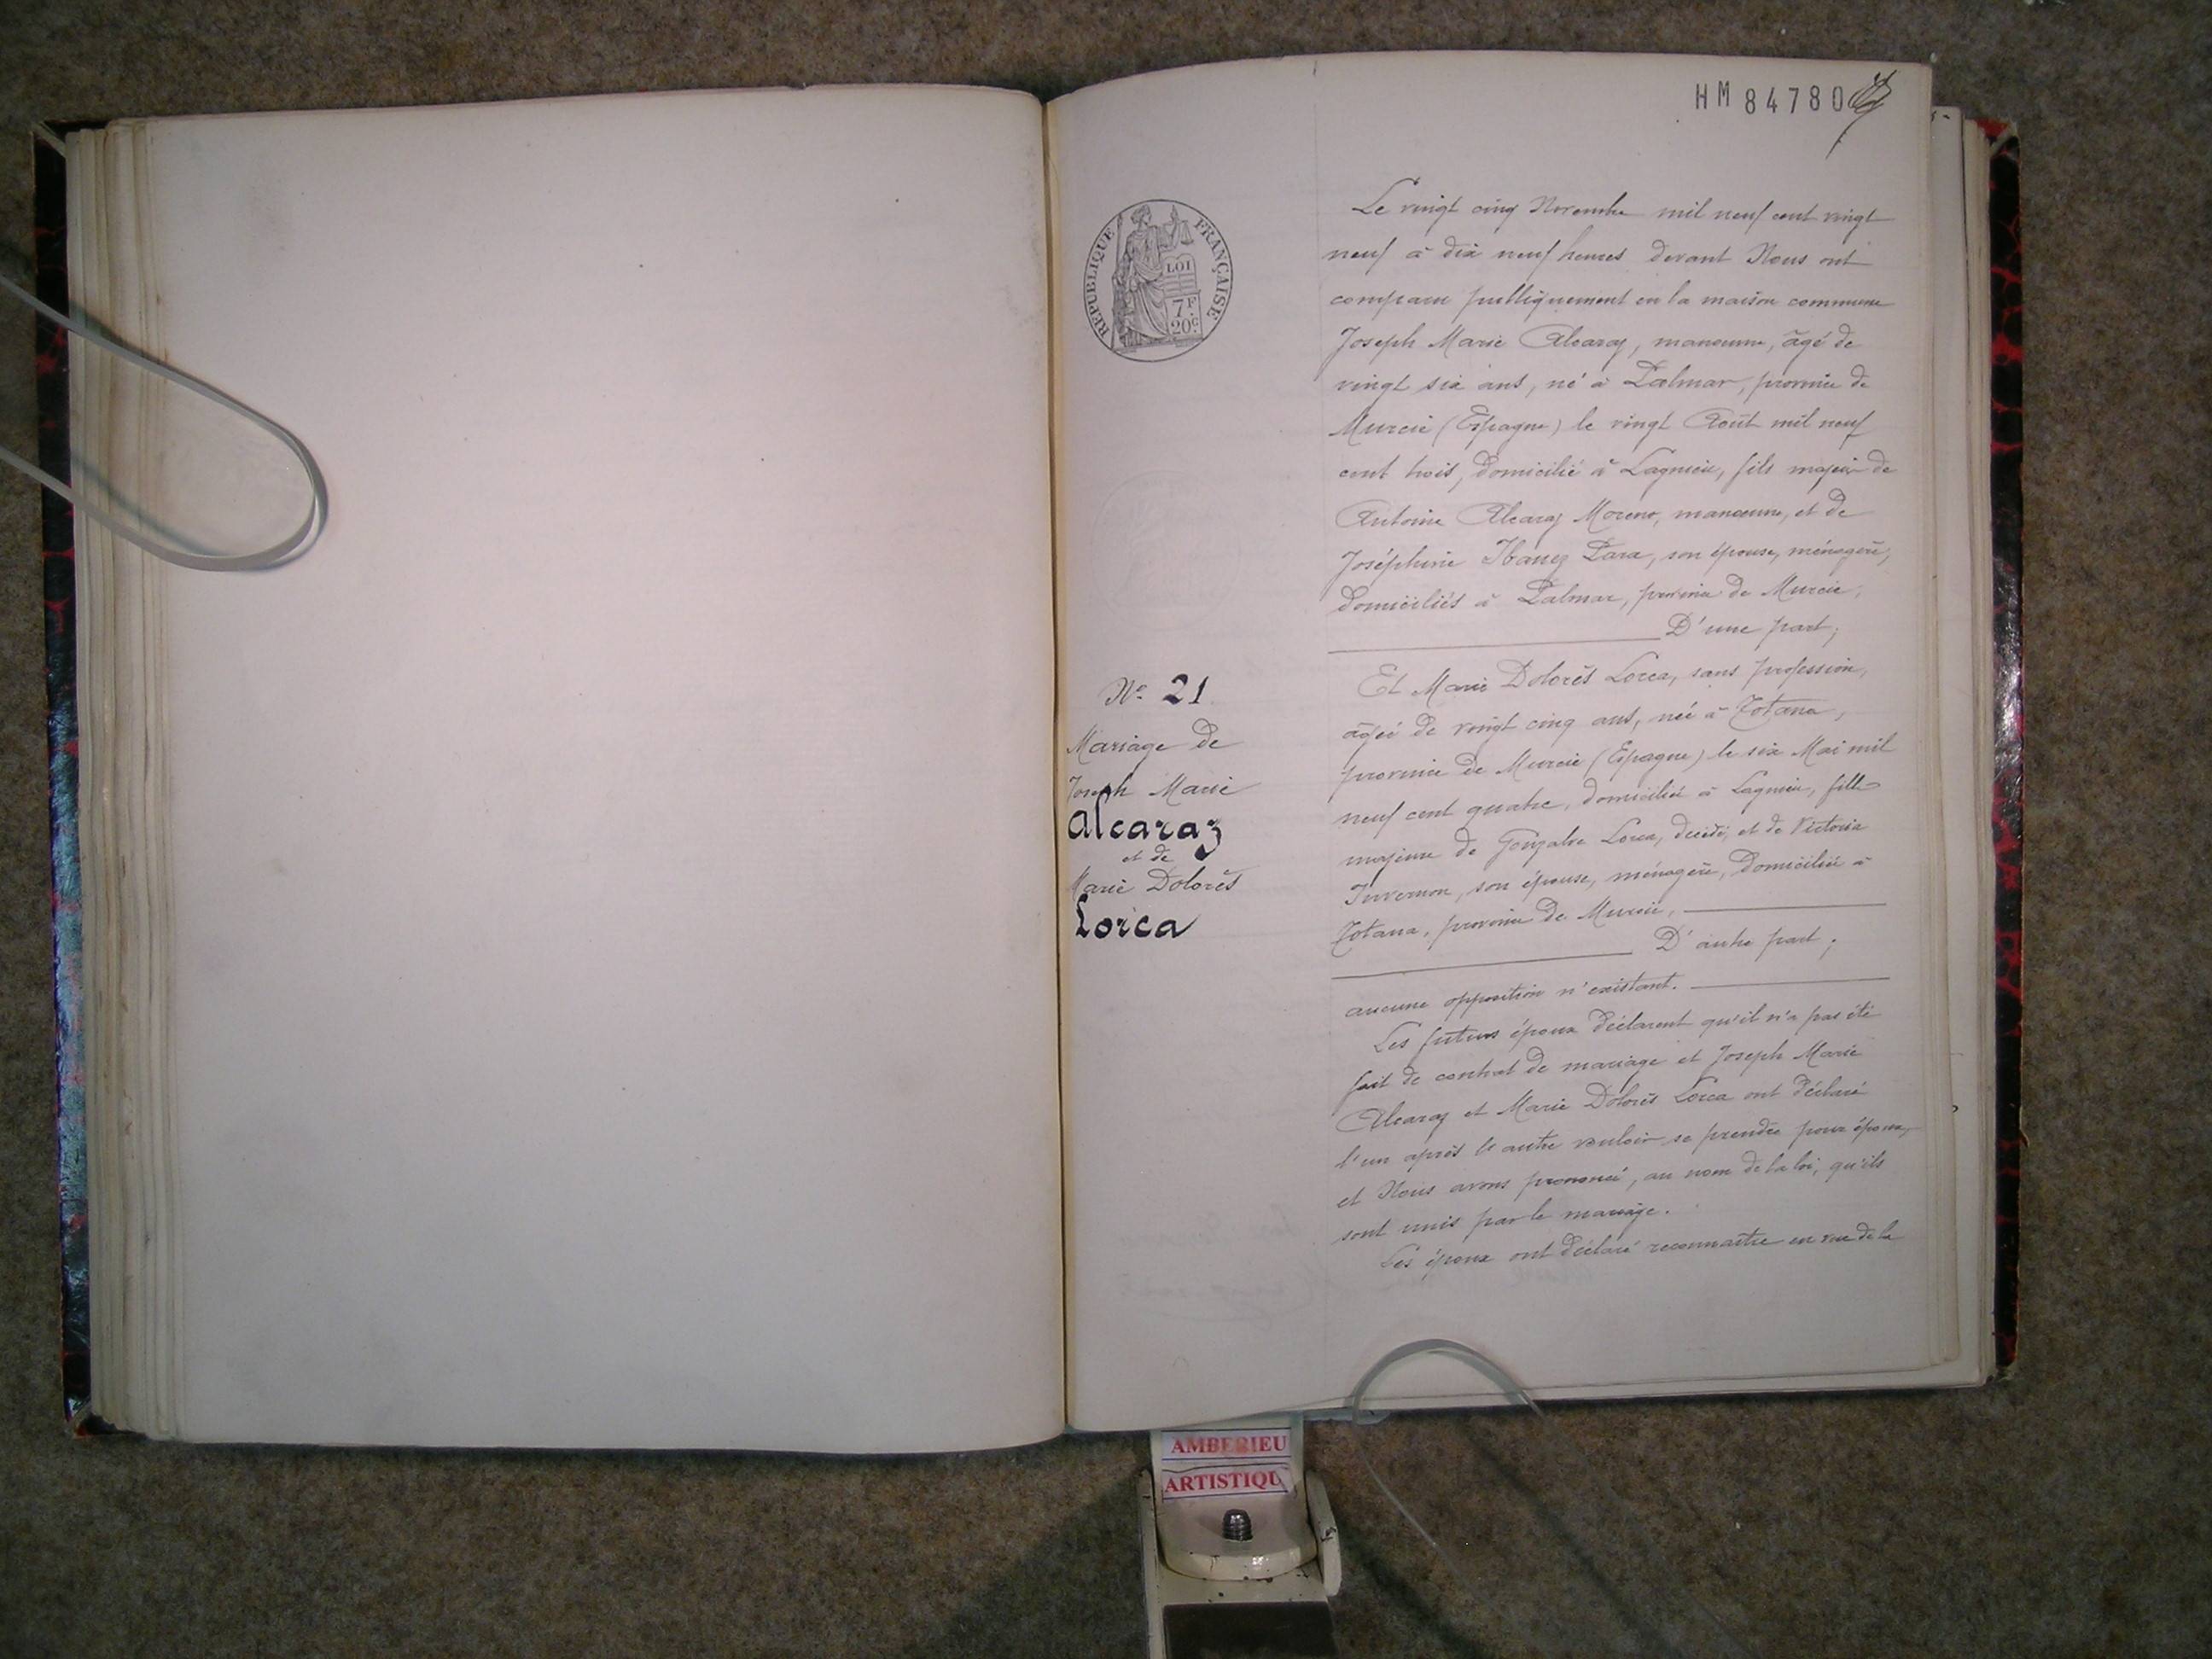 HM 84780
REPUBLIQUE FRANÇAISE
LOI
7F
20c
Le vingt cinq Novembre mil neuf cent vingt
neuf à dix neuf heures devant Nous ont
comparu publiquement en la maison commune
Joseph Marie Alcaraz, manœuvre, âgé de
vingt six ans, né à Palmar, province de
Murcie (Espagne) le vingt Août mil neuf
cent trois, domicilié à Lagnieu, fils majeur de
Antoine Alcaraz Moreno, manœuvre, et de
Joséphine Ibanez Para, son épouse, ménagère,
domiciliés à Palmar, province de Murcie,
D'une part;
Nº 21
Mariage de
Joseph Marie
Alcaraz
et de
Marie Dolorès
Lorca
Et Marie Dolorès Lorca, sans profession,
âgée de vingt cinq ans, née à Totana,
province de Murcie (Espagne) le six Mai mil
neuf cent quatre, domiciliée à Lagnieu, fille
majeure de Gonzalve Lorca, décédé, et de Victoria
Invernon, son épouse, ménagère, domiciliée à
Totana, province de Murcie,
D'autre part;
aucune opposition n'existant.
Les futurs époux déclarent qu'il n'a pas été
fait de contrat de mariage et Joseph Marie
Alcaraz et Marie Dolorès Lorca ont déclaré
l'un après l'autre vouloir se prendre pour époux,
et Nous avons prononcé, au nom de la loi, qu'ils
sont unis par le mariage.
Les époux ont déclaré reconnaître en vue de la
AMBERIEU
ARTISTIQU